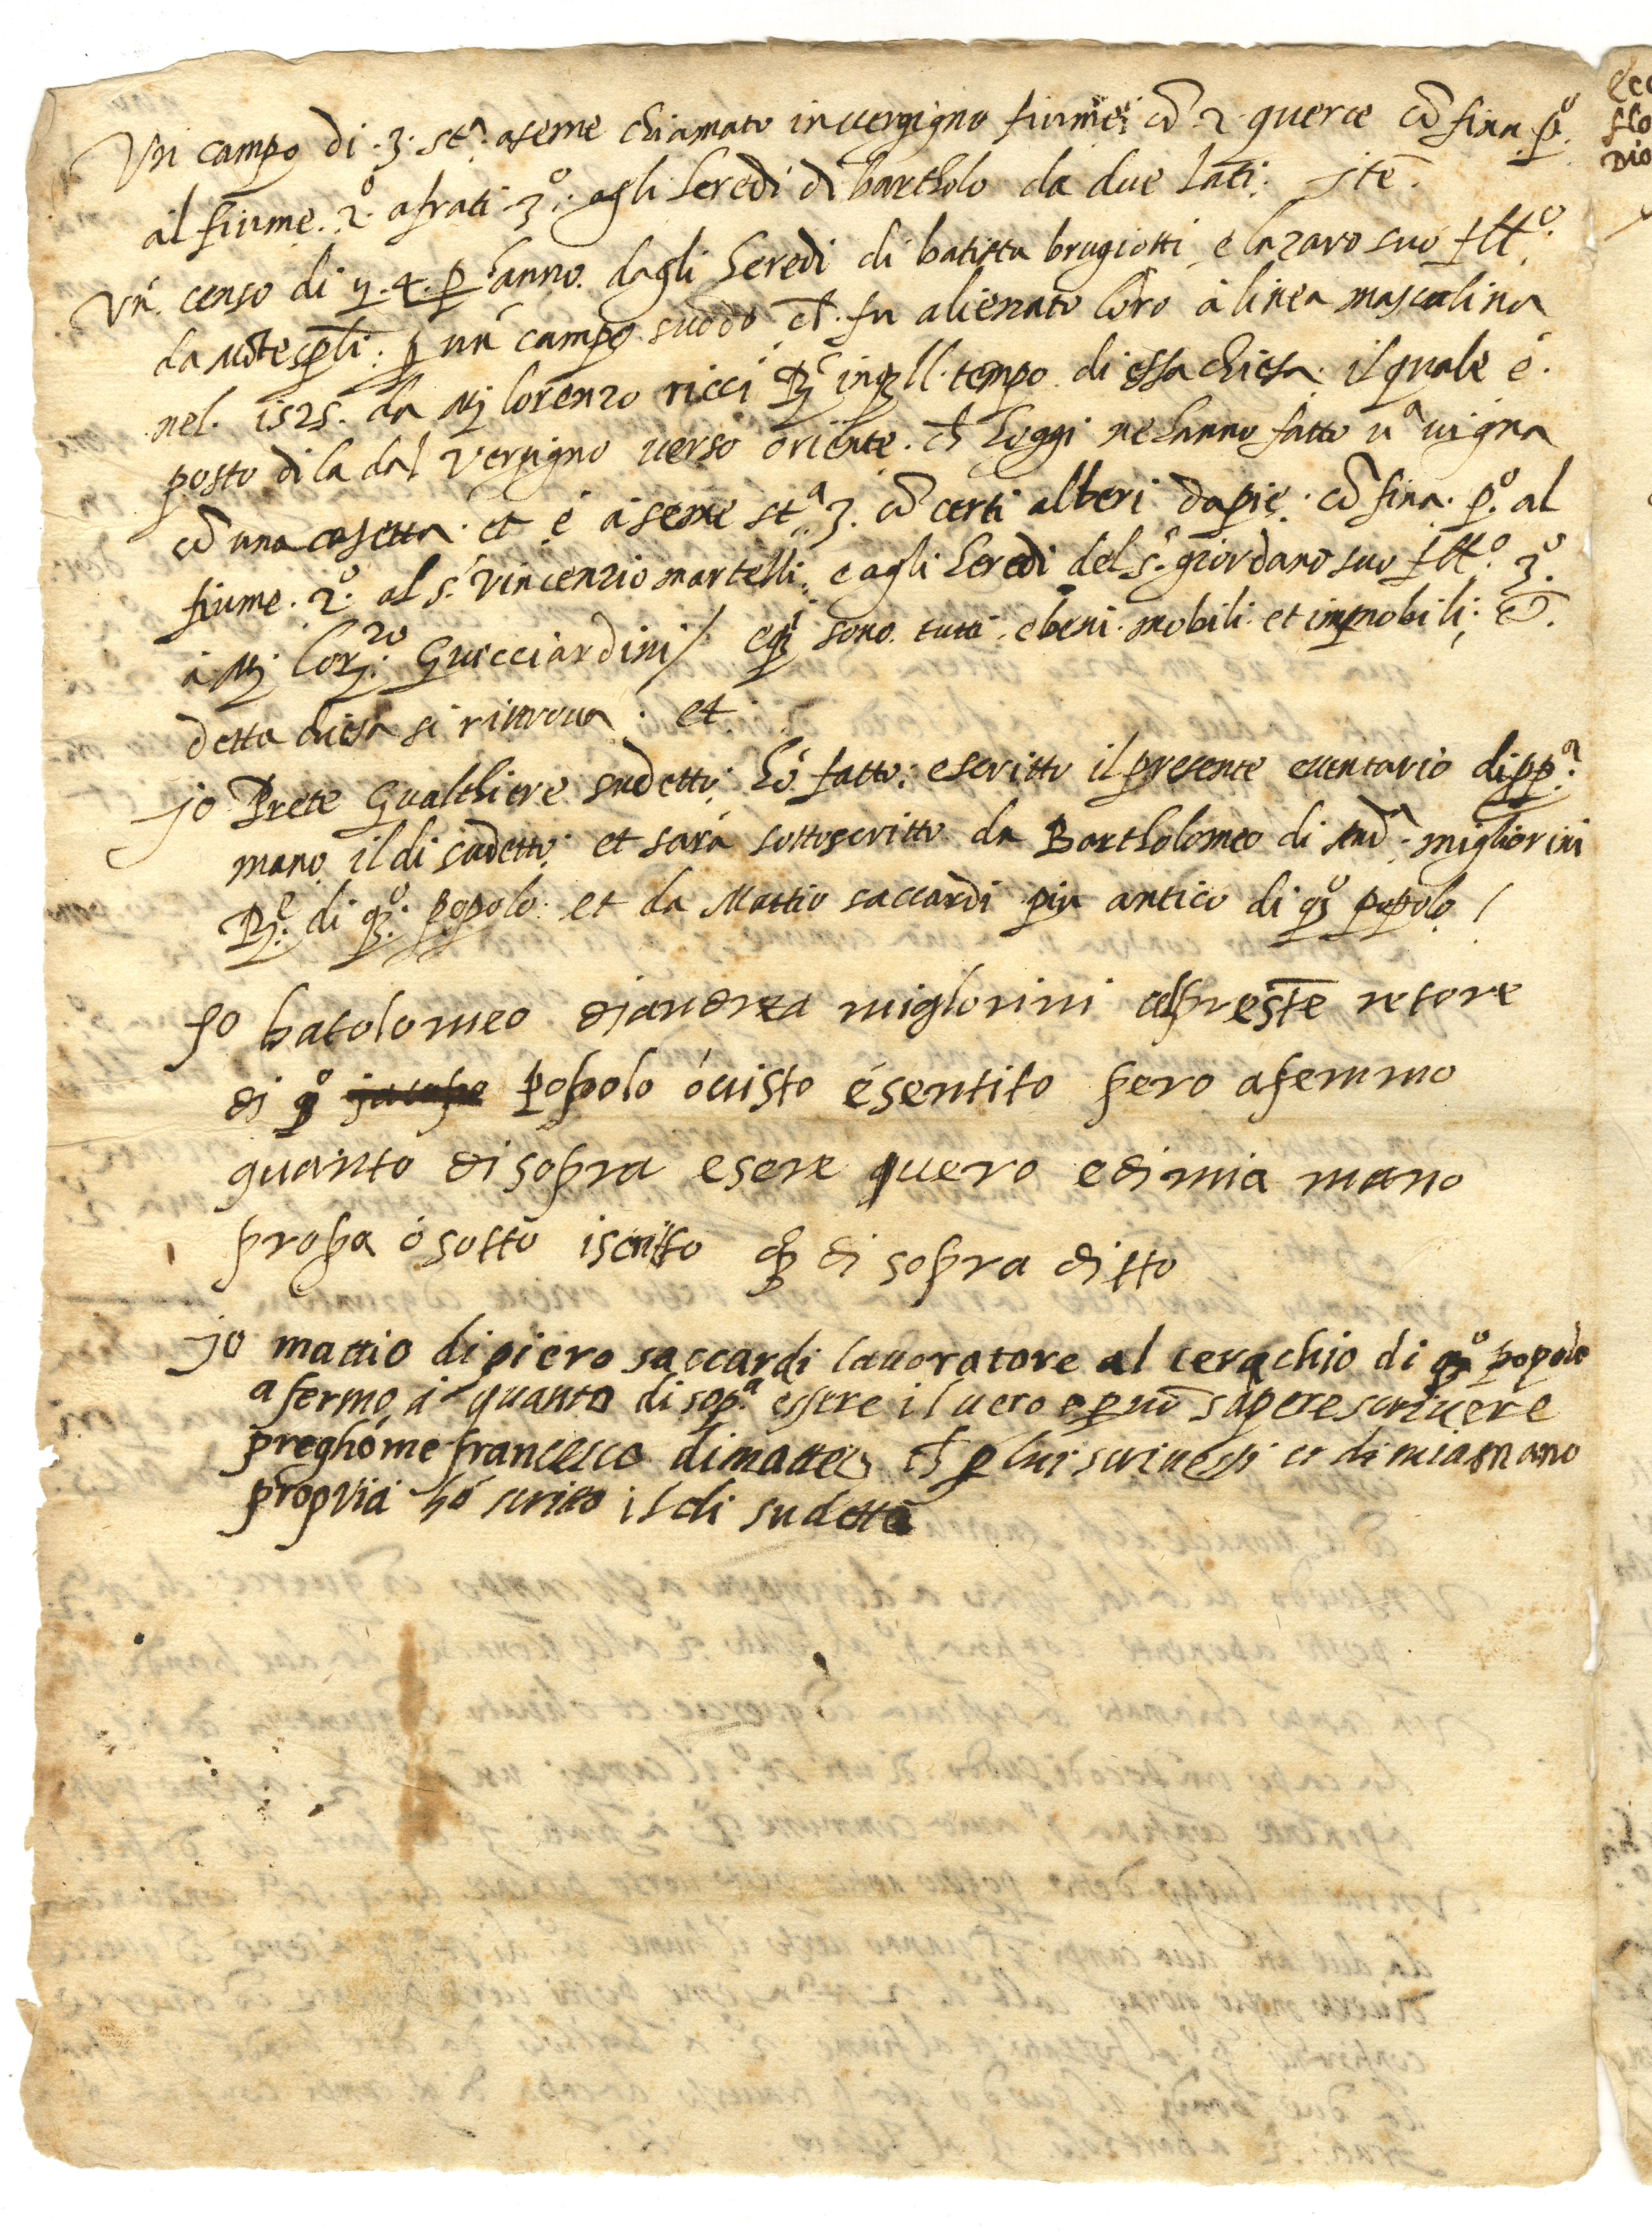 Un campo di .3. st.ª aseme chiamato in uergigno fiume: cõ .2. querce cõfina. p.º
al fiume. 2.º a frati .3.º agli heredi di bartholo da due lati: jtẽ.
Un censo di y. 4. p lanno. dagli heredi di batista brugiotti e lazaro suo fllº.
da Mõtesp̃li: p un campo suodo ch̃. fu alienato loro à linea masculina
nel. 1525. da Mʒ lorenzo ricci Rʳᵉ in qll. tempo di essa chiesa. il quale é.
posto di la dal Vergigno uerso oriẽnte. ch̃ hoggi ne hanno fatto uª uigna
cõ una casetta. et é à seme stª 3. cõ certi alberi da pie. cõfina. p.º al
fiume. 2.º al s.ʳ Vincenzio martelli. e agli heredi del s.ʳ giordano suo fllº. 3.º
à Mʒ lorʒ.ᶻᵒ Guicciardini/ e qʳⁱ sono tutti. e beni mobili. et immobili; ch̃.
detta chiesa si ritroua. et
jo Prete Gualthiere sudetto: hó fatto: e scritto il presente euentario di pp.ª
mano il di sudetto: et sará sottoscritto da Bartholomeo di andª. migliorini
Rʳᵉ. di qº. popolo. et da Mattio saccardi piu antico di qº popolo /
Jo batolomeo diandrea miglorini alprestẽ retore
di qº popolo ó uisto é sentito pero afermo
quanto disopra esere quero edi mia mano
propa ó sotto iscritto di sopra ditto
jo mattio di piero saccardi lauoratore al cerachio di qº popolo
afermo à quanto di sop.ª essere il uero e p nõ sapere scriuere
preghó me francesco di matteo ch̃ p lui scriuessi et di mia mano
propria hó scritto il di sudetto